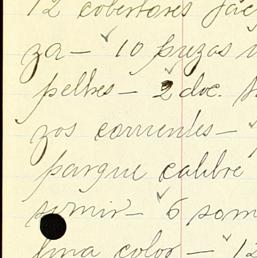 12 cobertores
za - 10 piezas
pelles - 2 doc.
zos corrientes -
parque calibre
- 6 som
lina color - 12